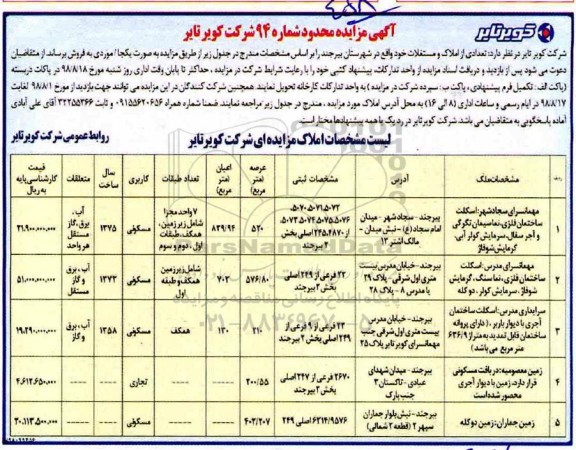 کویر تایر
آگهی مزایده محدود شماره ۹۴ شرکت کویر تایر
شرکت کویر تایر در نظر دارد: تعدادی از املاک و مستغلات خود واقع در شهرستان بیرجند را بر اساس مشخصات مندرج در جدول زیر از طریق مزایده به صورت یکجا / موردی به فروش برساند. از متقاضیان
دعوت می شود پس از بازدید و دریافت اسناد مزایده از واحد تدارکات، پیشنهاد کتبی خود را با رعایت شرایط شرکت در مزایده، حداکثر تا پایان وقت اداری روز شنبه مورخ ۹۸/۸/۱۸ در پاکات دربسته
(پاکت الف: تکمیل فرم پیشنهادی، پاکت ب: سپرده شرکت در مزایده) به واحد تدارکات کارخانه تحویل نمایند. همچنین شرکت کنندگان در این مزایده می توانند جهت بازدید از مورخ ۹۸/۸/۱ لغایت
۹۸/۸/۱۷ در ایام رسمی و ساعات اداری (۸ الی ۱۶) به محل آدرس املاک مورد مزایده، مندرج در جدول زیر مراجعه نمایند. ضمنا شماره همراه ۰۹۱۵۵۶۲۰۶۵۶ و ثابت ۳۲۲۵۵۳۶۶ آقای علی آبادی
آماده پاسخگویی به متقاضیان می باشد. شرکت کویر تایر در رد یک یا همه پیشنهادها مختار است.
روابط عمومی شرکت کویر تایر
لیست مشخصات املاک مزایده ای شرکت کویر تایر
ردیف | مشخصات ملک | آدرس | مشخصات ثبتی | عرصه (متر مربع) | اعیان (متر مربع) | تعداد طبقات | کاربری | سال ساخت | متعلقات | قیمت کارشناسی پایه به ریال
۱ | مهمانسرای سجادشهر: اسکلت ساختمان فلزی، نما سیمان تگرگی و آجر سفال، سرمایش کولر آبی، گرمایش شوفاژ | بیرجند - سجادشهر - میدان امام سجاد (ع) - نبش میدان - مالک اشتر ۱۳ | از ۲۴۵.۴۸۷۰ اصلی بخش ۲ بیرجند | ۵۲۰ | ۸۳۹/۹۴ | ۷ واحد مجزا شامل زیرزمین، همکف، طبقات اول، دوم و سوم | مسکونی | ۱۳۷۵ | آب، برق، گاز مستقل هر واحد | ۳۱.۹۰۰.۰۰۰.۰۰۰
۲ | مهمانسرای مدرس: اسکلت ساختمان فلزی، نما سنگ، گرمایش شوفاژ، سرمایش کولر، دوکله | بیرجند - خیابان مدرس بیست متری اول شرقی - پلاک ۲۹ یا مدرس ۸ - پلاک ۲۸ | ۲۲ فرعی از ۲۴۹ اصلی بخش ۲ بیرجند | ۵۷۶/۸۰ | ۷۰۳ | شامل زیرزمین همکف و طبقه اول | مسکونی | ۱۳۷۳ | آب، برق و گاز مستقل | ۵۱.۰۰۰.۰۰۰.۰۰۰
۳ | سرایداری مدرس: اسکلت ساختمان آجری با دیوار باربر، (دارای پروانه ساختمان قابل تمدید به متراژ ۶۳۶/۹ متر مربع می باشد) | بیرجند - خیابان مدرس بیست متری اول شرقی جنب مهمانسرای کویر تایر پلاک ۲۵ | ۲۳ فرعی از ۹ فرعی از ۲۴۹ اصلی بخش ۲ بیرجند | ۲۱۰ | ۱۳۰ | همکف | مسکونی | ۱۳۵۸ | آب، برق و گاز | ۱۹.۲۹۰.۰۰۰.۰۰۰
۴ | زمین معصومیه: در بافت مسکونی قرار دارد، زمین با دیوار آجری محصور شده است | بیرجند - میدان شهدای عبادی - تاکستان ۳ جنب پارک | ۲۶۷۰ فرعی از ۲۴۷ اصلی بخش ۲ بیرجند | ۲۰۰/۵۵ | ----- | ----- | تجاری | ---- | ---- | ۴.۶۱۲.۶۵۰.۰۰۰
۵ | زمین جماران: زمین دو کله | بیرجند - نبش بلوار جماران سپهر ۲ (قطعه ۲ شمالی) | ۶۲۱۴/۹۵۷۶ اصلی ۲۴۹ | ۴۰۲/۲۰۷ | ----- | ----- | مسکونی | ---- | ---- | ۳۰.۱۱۳.۵۰۰.۰۰۰
ParsNamadData
پایگاه اطلاع رسانی مناقصه و مزایده
۰۲۱-۸۸۳۴۹۶۷۰-۵